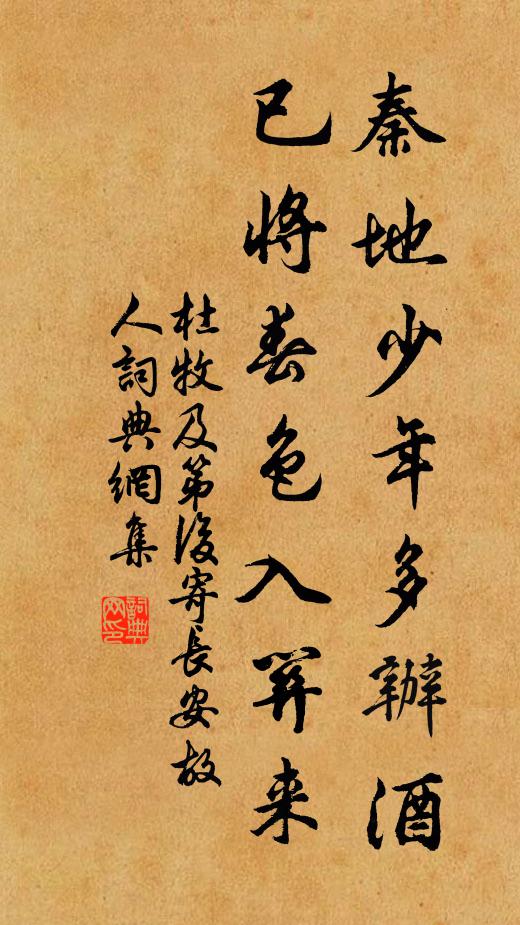 秦地少年多辦酒
已將春色入關来
杜牧及第後寄長安故
人詞典網集
詞典
网印